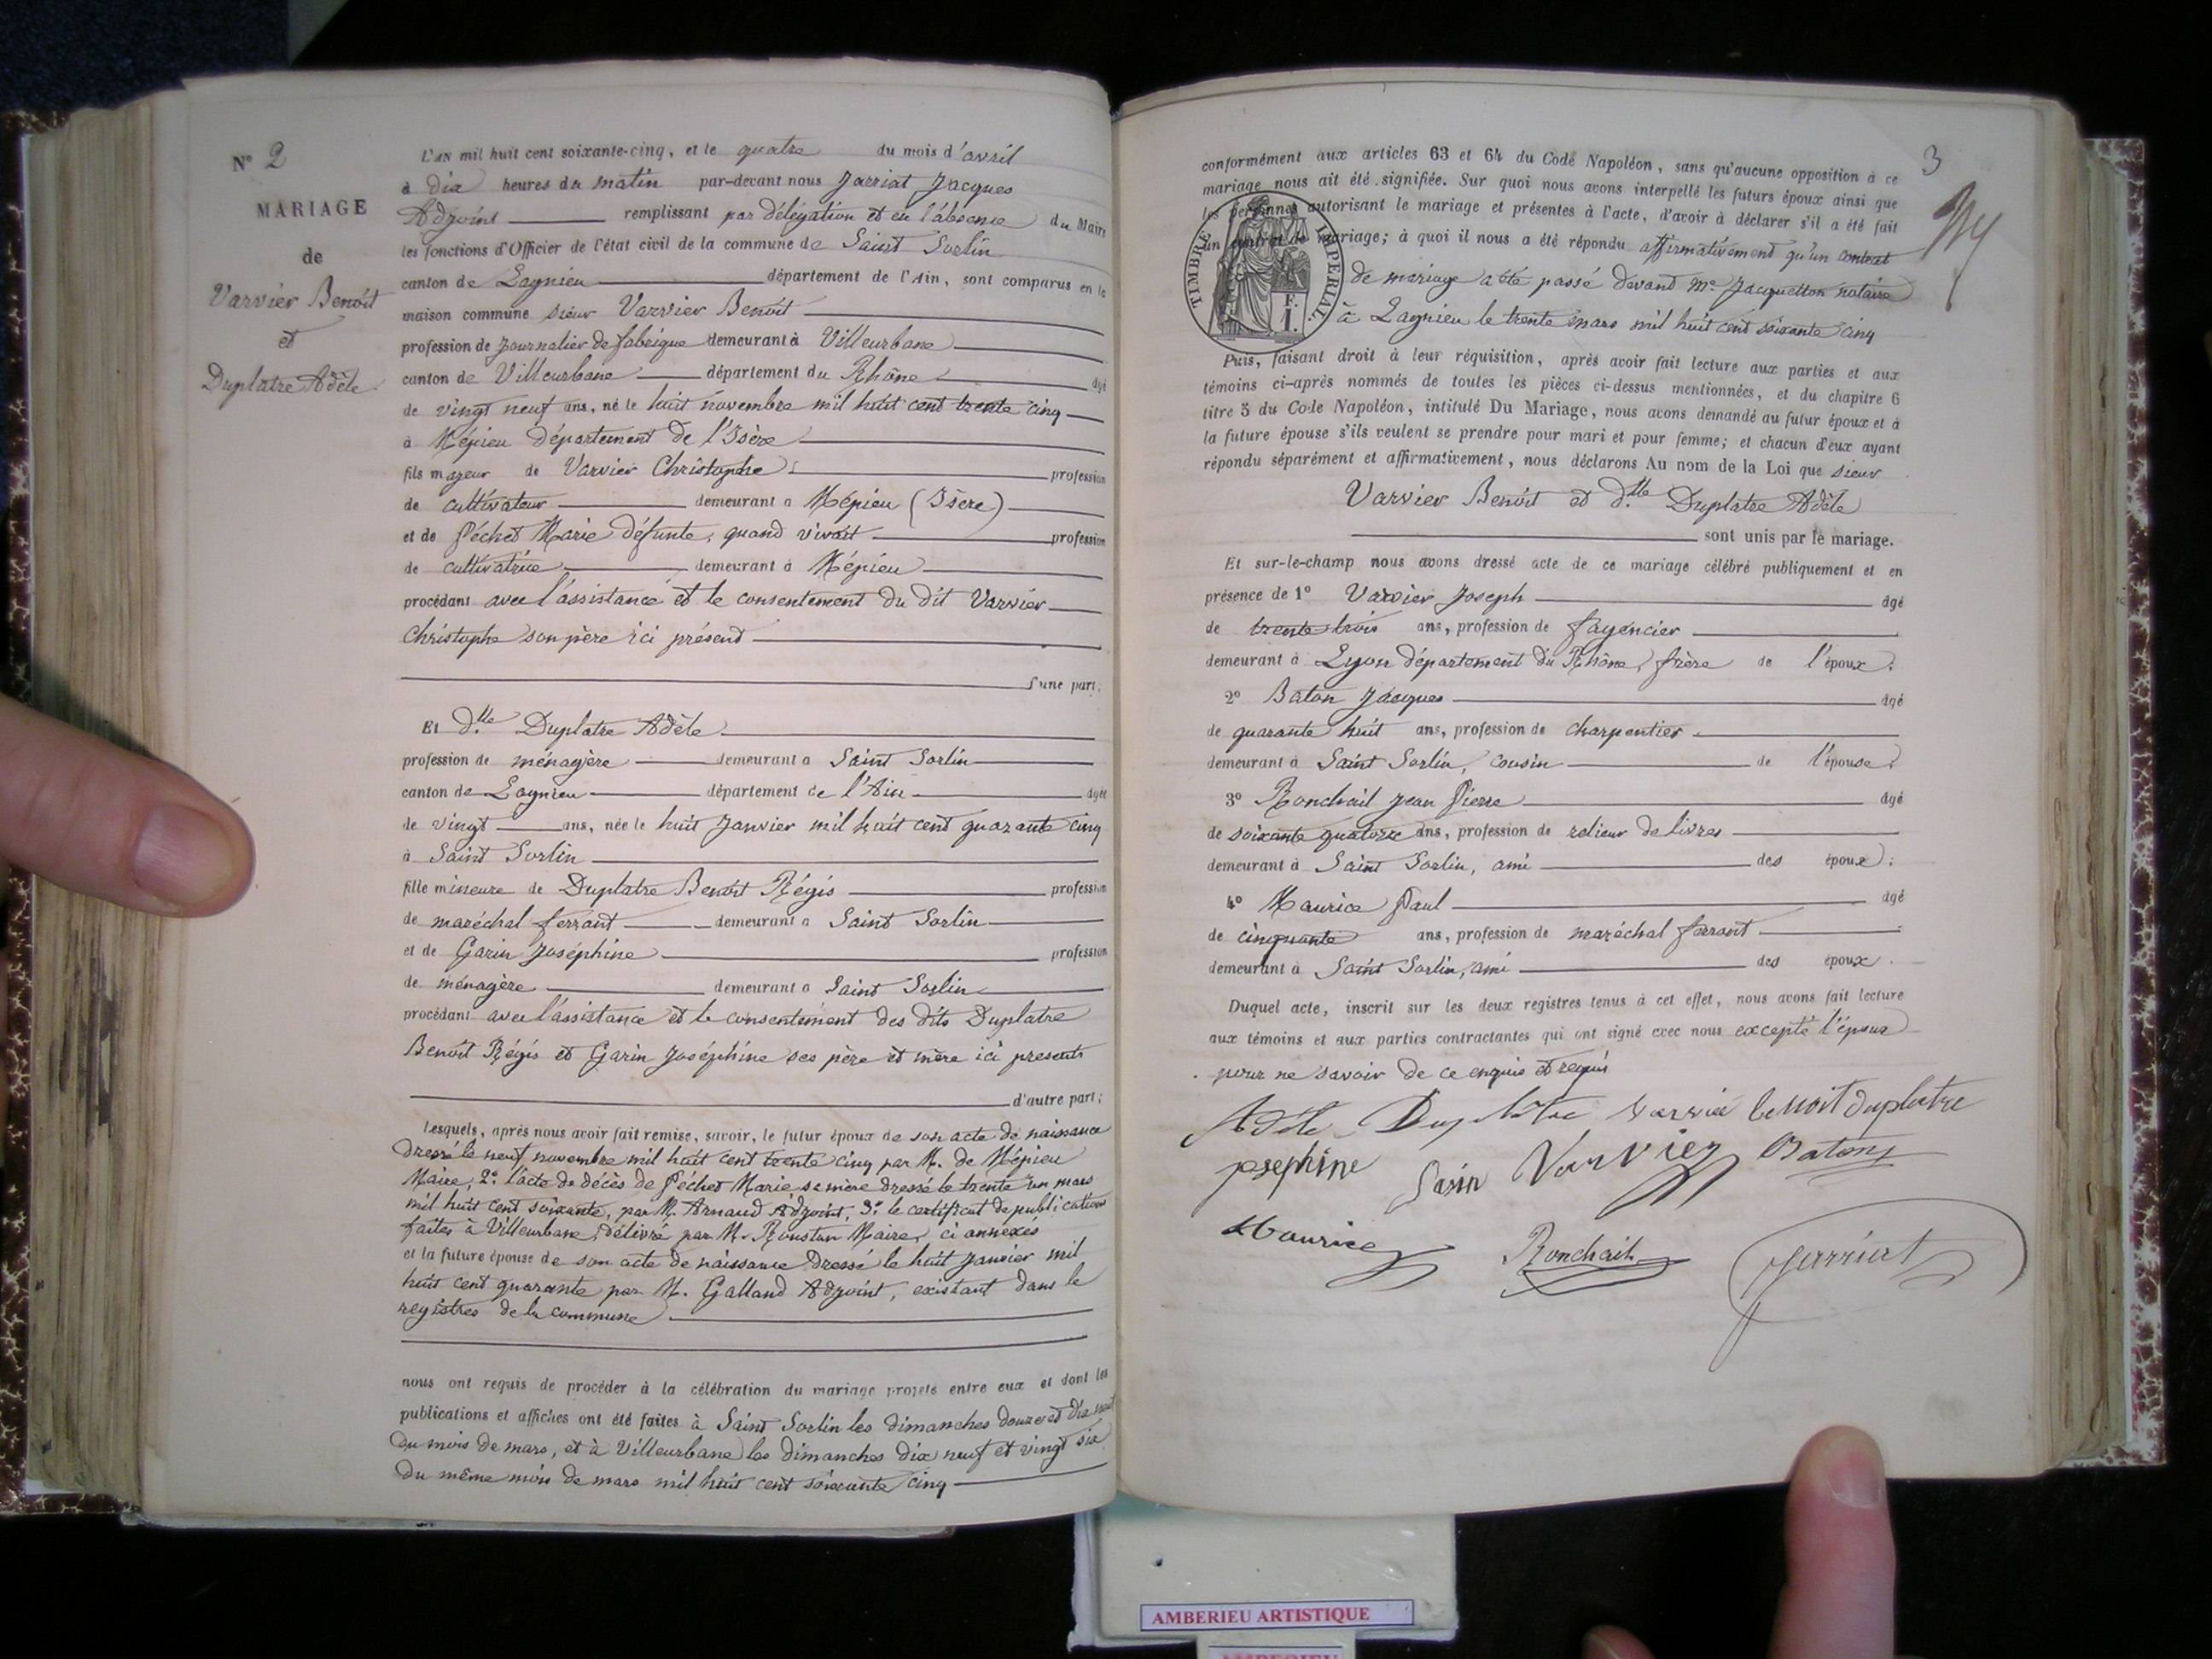 N° 2
MARIAGE
de
Varvier Benoît
et
Duplatre Adèle
L'AN mil huit cent soixante-cinq, et le quatre du mois d'avril
à dix heures du matin par-devant nous Jarriat Jacques
Adjoint remplissant par délégation et en l'absence du Maire
les fonctions d'Officier de l'état civil de la commune de Saint Sorlin
canton de Lagnieu département de l'Ain, sont comparus en la
maison commune sieur Varvier Benoît
profession de journalier de fabrique demeurant à Villeurbane
canton de Villeurbane département du Rhône âgé
de vingt neuf ans, né le huit novembre mil huit cent trente cinq
à Mépieu département de l'Isère
fils majeur de Varvier Christophe profession
de cultivateur demeurant à Mépieu (Isère)
et de Péchet Marie défunte, quand vivait profession
de cultivatrice demeurant à Mépieu
procédant avec l'assistance et le consentement du dit Varvier
Christophe son père ici présent
d'une part;
Et dlle Duplatre Adèle
profession de ménagère demeurant à Saint Sorlin
canton de Lagnieu département de l'Ain âgée
de vingt ans, née le huit Janvier mil huit cent quarante cinq
à Saint Sorlin
fille mineure de Duplatre Benoît Régis profession
de maréchal ferrant demeurant à Saint Sorlin
et de Garin Joséphine profession
de ménagère demeurant à Saint Sorlin
procédant avec l'assistance et le consentement des dits Duplatre
Benoît Régis et Garin Joséphine ses père et mère ici présents
d'autre part;
Lesquels, après nous avoir fait remise, savoir, le futur époux de son acte de naissance
dressé le neuf novembre mil huit cent trente cinq par M. de Mépieu
Maire, 2° l'acte de décès de Péchet Marie sa mère dressé le trente un mars
mil huit cent soixante, par M. Arnaud Adjoint, 3° le certificat de publications
faites à Villeurbane, délivré par M. Roustan Maire, ci annexés
et la future épouse de son acte de naissance dressé le huit Janvier mil
huit cent quarante par M. Galland Adjoint, existant dans le
registres de la commune
nous ont requis de procéder à la célébration du mariage projeté entre eux et dont les
publications et affiches ont été faites à Saint Sorlin les dimanches douze et dix neuf
du mois de mars, et à Villeurbane les dimanches dix neuf et vingt six
du même mois de mars mil huit cent soixante cinq
3
conformément aux articles 63 et 64 du Code Napoléon, sans qu'aucune opposition à ce
mariage nous ait été signifiée. Sur quoi nous avons interpellé les futurs époux ainsi que
les personnes autorisant le mariage et présentes à l'acte, d'avoir à déclarer s'il a été fait
un contrat de mariage; à quoi il nous a été répondu affirmativement qu'un contrat
de mariage a été passé devant Me Jacquetton notaire
à Lagnieu le trente mars mil huit cent soixante cinq
TIMBRE IMPERIAL
F.
1.
Puis, faisant droit à leur réquisition, après avoir fait lecture aux parties et aux
témoins ci-après nommés de toutes les pièces ci-dessus mentionnées, et du chapitre 6
titre 5 du Code Napoléon, intitulé Du Mariage, nous avons demandé au futur époux et à
la future épouse s'ils veulent se prendre pour mari et pour femme; et chacun d'eux ayant
répondu séparément et affirmativement, nous déclarons Au nom de la Loi que sieur
Varvier Benoît et dlle Duplatre Adèle
sont unis par le mariage.
Et sur-le-champ nous avons dressé acte de ce mariage célébré publiquement et en
présence de 1° Varvier Joseph âgé
de trente trois ans, profession de fayencier
demeurant à Lyon département du Rhône, frère de l'époux;
2° Baton Jacques âgé
de quarante huit ans, profession de charpentier
demeurant à Saint Sorlin, cousin de l'épouse;
3° Ronchail Jean Pierre âgé
de soixante quatorze ans, profession de relieur de livres
demeurant à Saint Sorlin, ami des époux;
4° Maurice Paul âgé
de cinquante ans, profession de maréchal ferrant
demeurant à Saint Sorlin, ami des époux.
Duquel acte, inscrit sur les deux registres tenus à cet effet, nous avons fait lecture
aux témoins et aux parties contractantes qui ont signé avec nous excepté l'époux
pour ne savoir de ce enquis et requis
Adèle Duplâtre varvié benoit duplatre
josephine Garin Varvier Baton
Maurice Ronchail Jarriat
AMBERIEU ARTISTIQUE
AMBERIEU